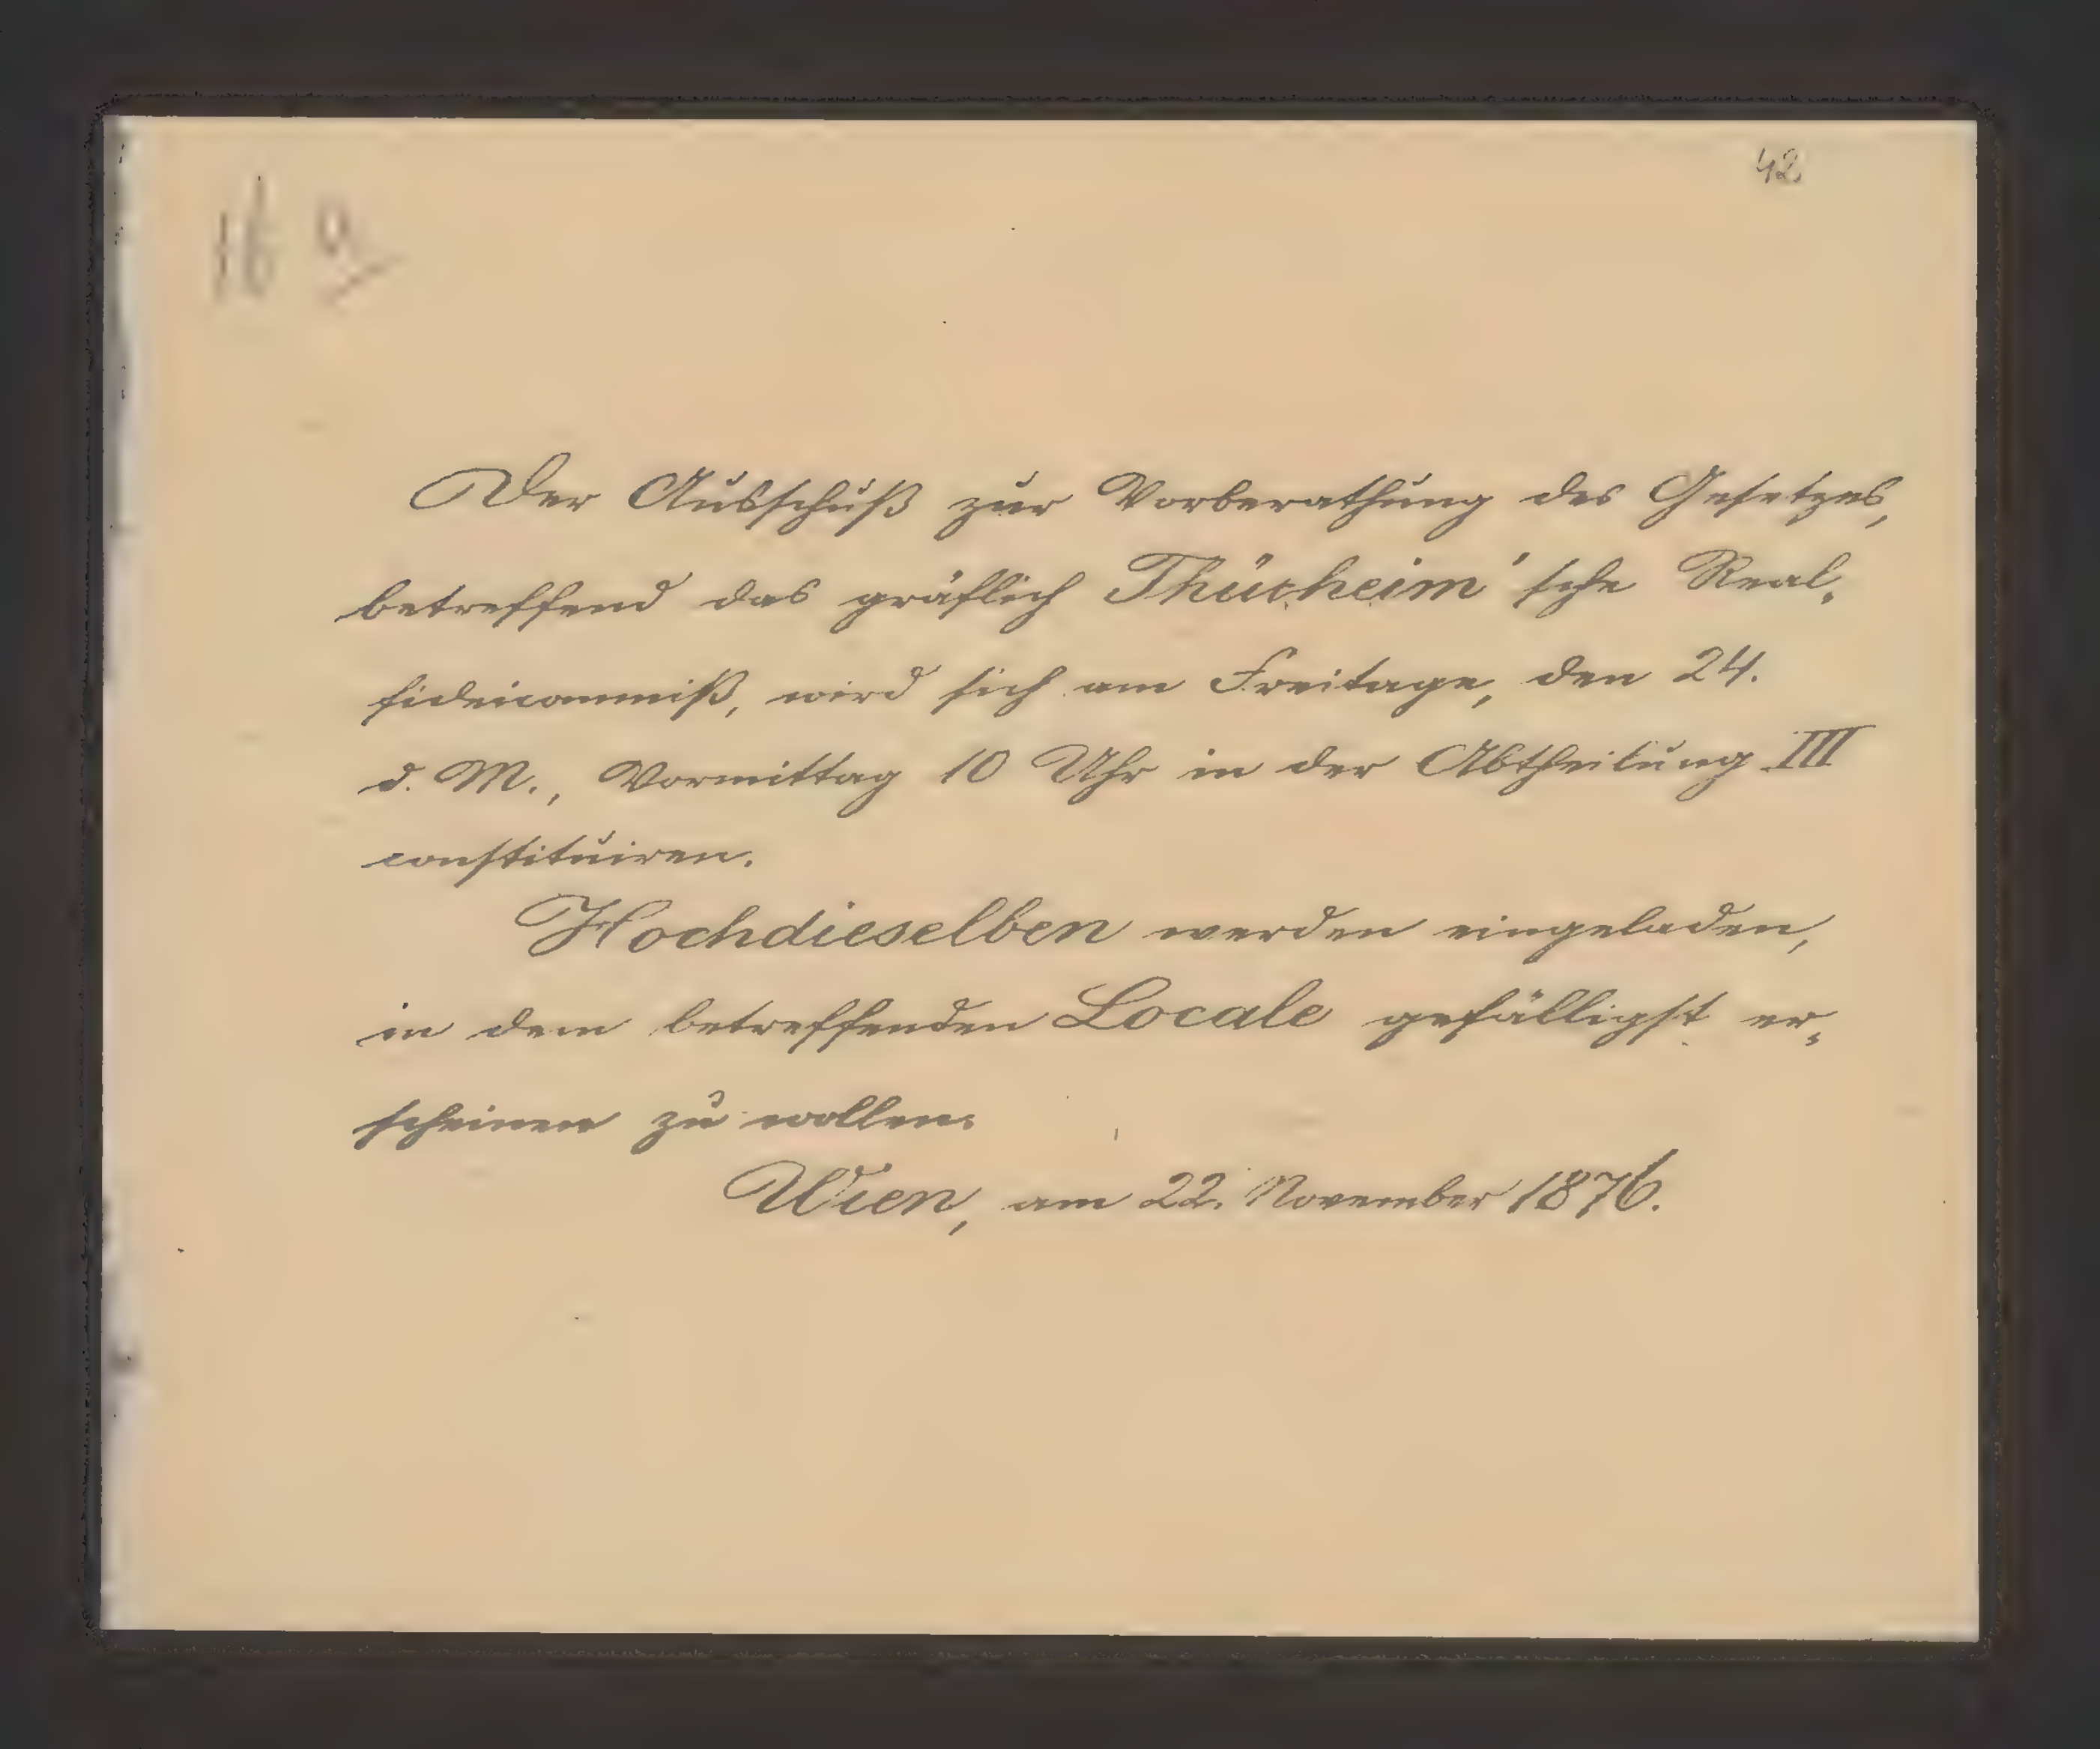 42
16 a
Der Ausschuß zur Vorberathung des Gesetzes,
betreffend das gräflich Thürheim'sche Real-
fideicommiß, wird sich am Freitage, den 24.
d. M., Vormittag 10 Uhr in der Abtheilung III
constituiren.
Hochdieselben werden eingeladen,
in dem betreffenden Locale gefälligst er-
scheinen zu wollen.
Wien, am 22. November 1876.